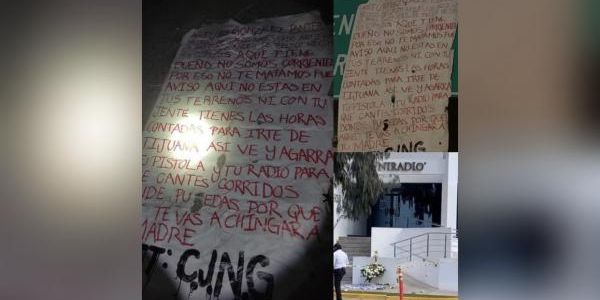 AQUI TIENE
DUEÑO NO SOMOS CORRIENTES
POR ESO NO TE MATAMOS FUE
AVISO AQUI NO ESTAS EN
TUS TERRENOS NI CON TU
GENTE TIENES LAS HORAS
CONTADAS PARA IRTE DE
TIJUANA ASI VE Y AGARRA
TU PISTOLA Y TU RADIO PARA
QUE CANTES CORRIDOS
DONDE PUEDAS POR QUE
TE VAS A CHINGAR A
MADRE
ATT: CJNG
AQUI TIENE
DUEÑO NO SOMOS CORRIENTES
POR ESO NO TE MATAMOS FUE
AVISO AQUI NO ESTAS EN
TUS TERRENOS NI CON TU
GENTE TIENES LAS HORAS
CONTADAS PARA IRTE DE
TIJUANA ASI VE Y AGARRA
TU PISTOLA Y TU RADIO PARA
QUE CANTES CORRIDOS
DONDE PUEDAS POR QUE
TE VAS A CHINGAR A
MADRE
CJNG
UNIRADIO